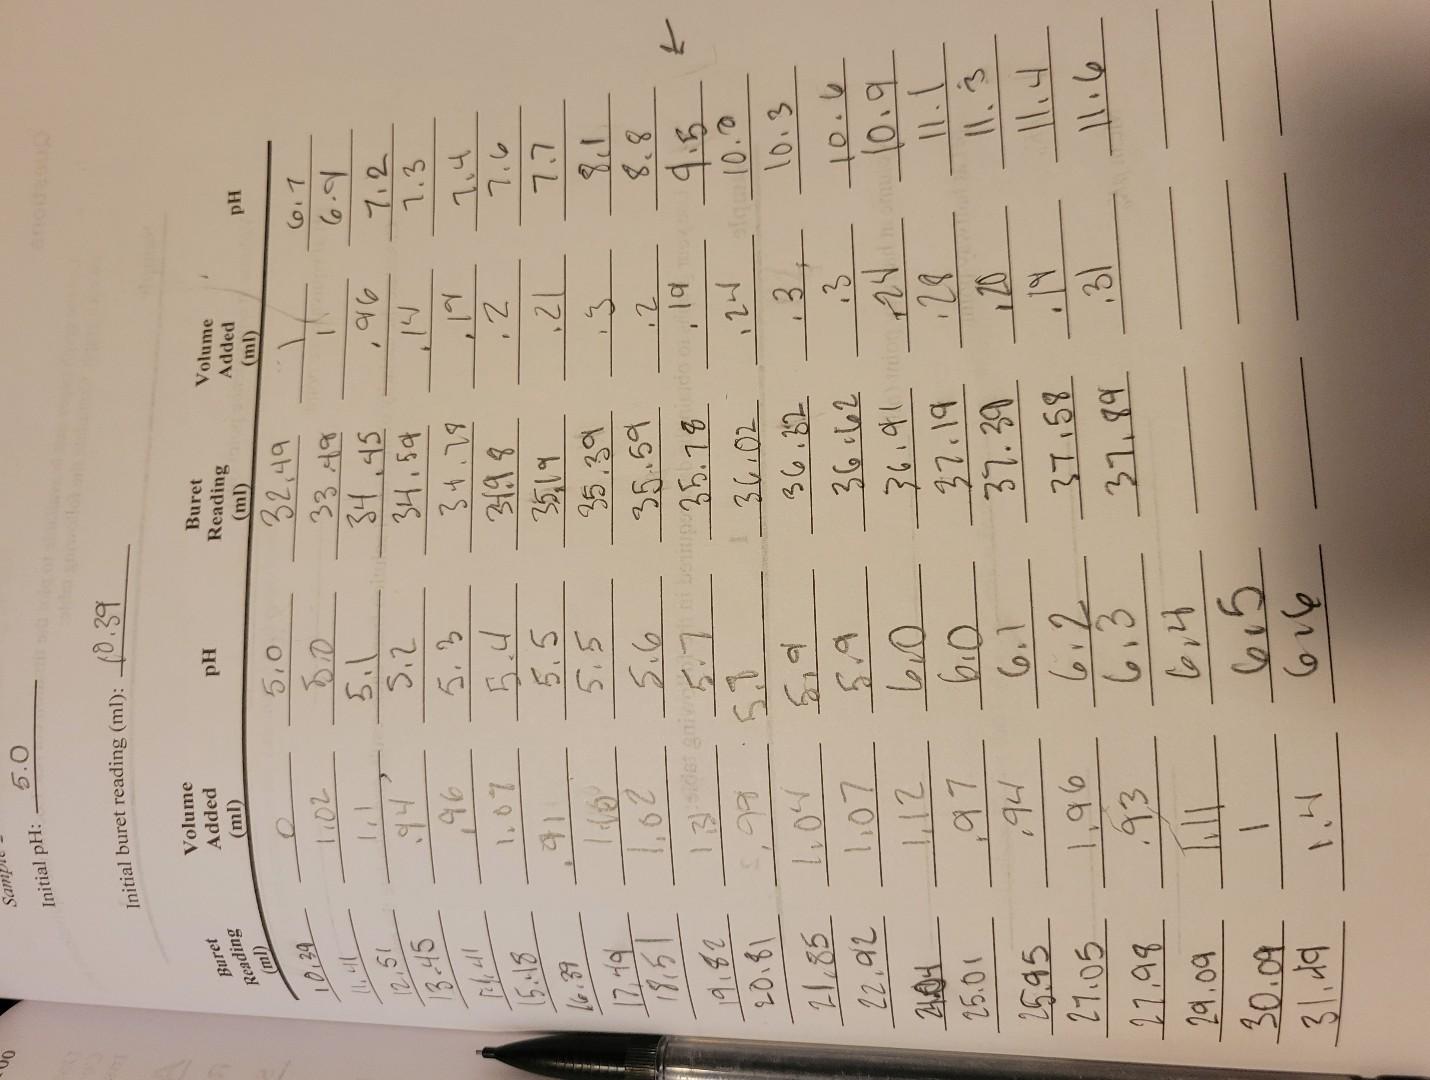 Sample
Initial pH: 5.0
Initial buret reading (ml): 10.39
Buret Reading (ml) Volume Added (ml) pH Buret Reading (ml) Volume Added (ml) pH
10.39 0 5.0 32.49 1 6.7
11.41 1.02 5.0 33.49 1 6.9
12.51 1.1 5.1 34.45 .96 7.2
13.45 .94 5.2 34.59 .14 7.3
14.41 .96 5.3 34.78 .19 7.4
15.48 1.07 5.4 34.98 .2 7.6
16.39 .91 5.5 35.19 .21 7.7
17.49 5.5 35.39 .3 8.1
18.51 1.02 5.6 35.59 .2 8.8
19.82 1.31 5.7 35.78 .19 9.5
20.81 .99 5.8 36.02 .24 10.0
21.85 1.04 5.9 36.32 .3 10.3
22.92 1.07 5.9 36.62 .3 10.6
24.04 1.12 6.0 36.91 .24 10.9
25.01 .97 6.0 37.19 .28 11.1
25.95 .94 6.1 37.39 .20 11.3
27.05 1.96 6.2 37.58 .19 11.4
27.98 .93 6.3 37.89 .31 11.6
29.09 1.11 6.4
30.09 1 6.5
31.49 1.4 6.6